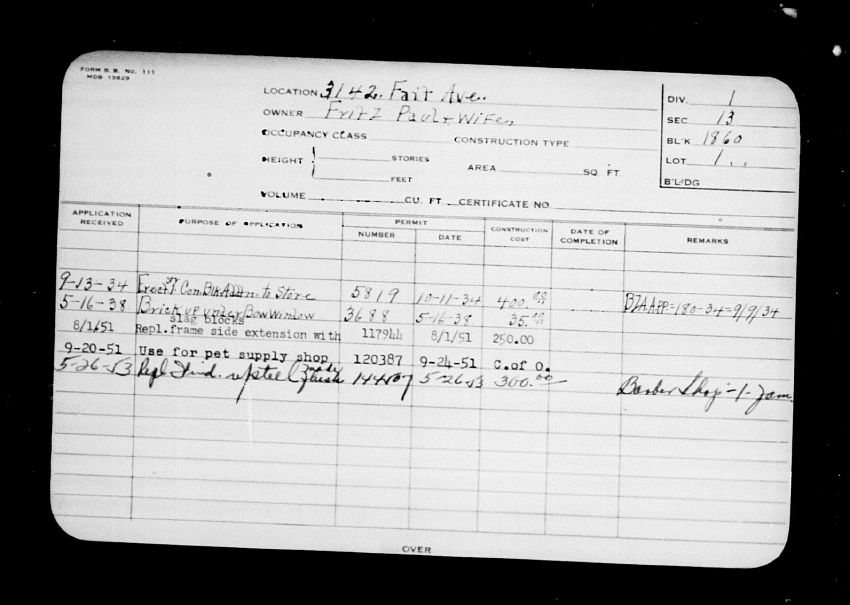 FORM B. B. NO. 111
MDB 13629
LOCATION 3142. Fair Ave.
OWNER Fritz Paul & Wife,
OCCUPANCY CLASS CONSTRUCTION TYPE
HEIGHT STORIES
FEET
AREA SQ. FT.
VOLUME CU. FT. CERTIFICATE NO
DIV. 1
SEC 13
BL'K 1860
LOT 1
B'L'DG
APPLICATION RECEIVED PURPOSE OF APPLICATION PERMIT NUMBER DATE CONSTRUCTION COST DATE OF COMPLETION REMARKS
9-13-34 Erect Con Blk Addn to Store 5819 10-11-34 400.00 BZA APP=180-34=9/9/34
5-16-38 Brick up under Bow Window 3688 5-16-38 35.00
slag blocks
8/1/51 Repl.frame side extension with 117944 8/1/51 250.00
9-20-51 Use for pet supply shop 120387 9-24-51 C.of O.
5-26-53 Repl 5-26-53 300.00 Barber Shop-1-
OVER